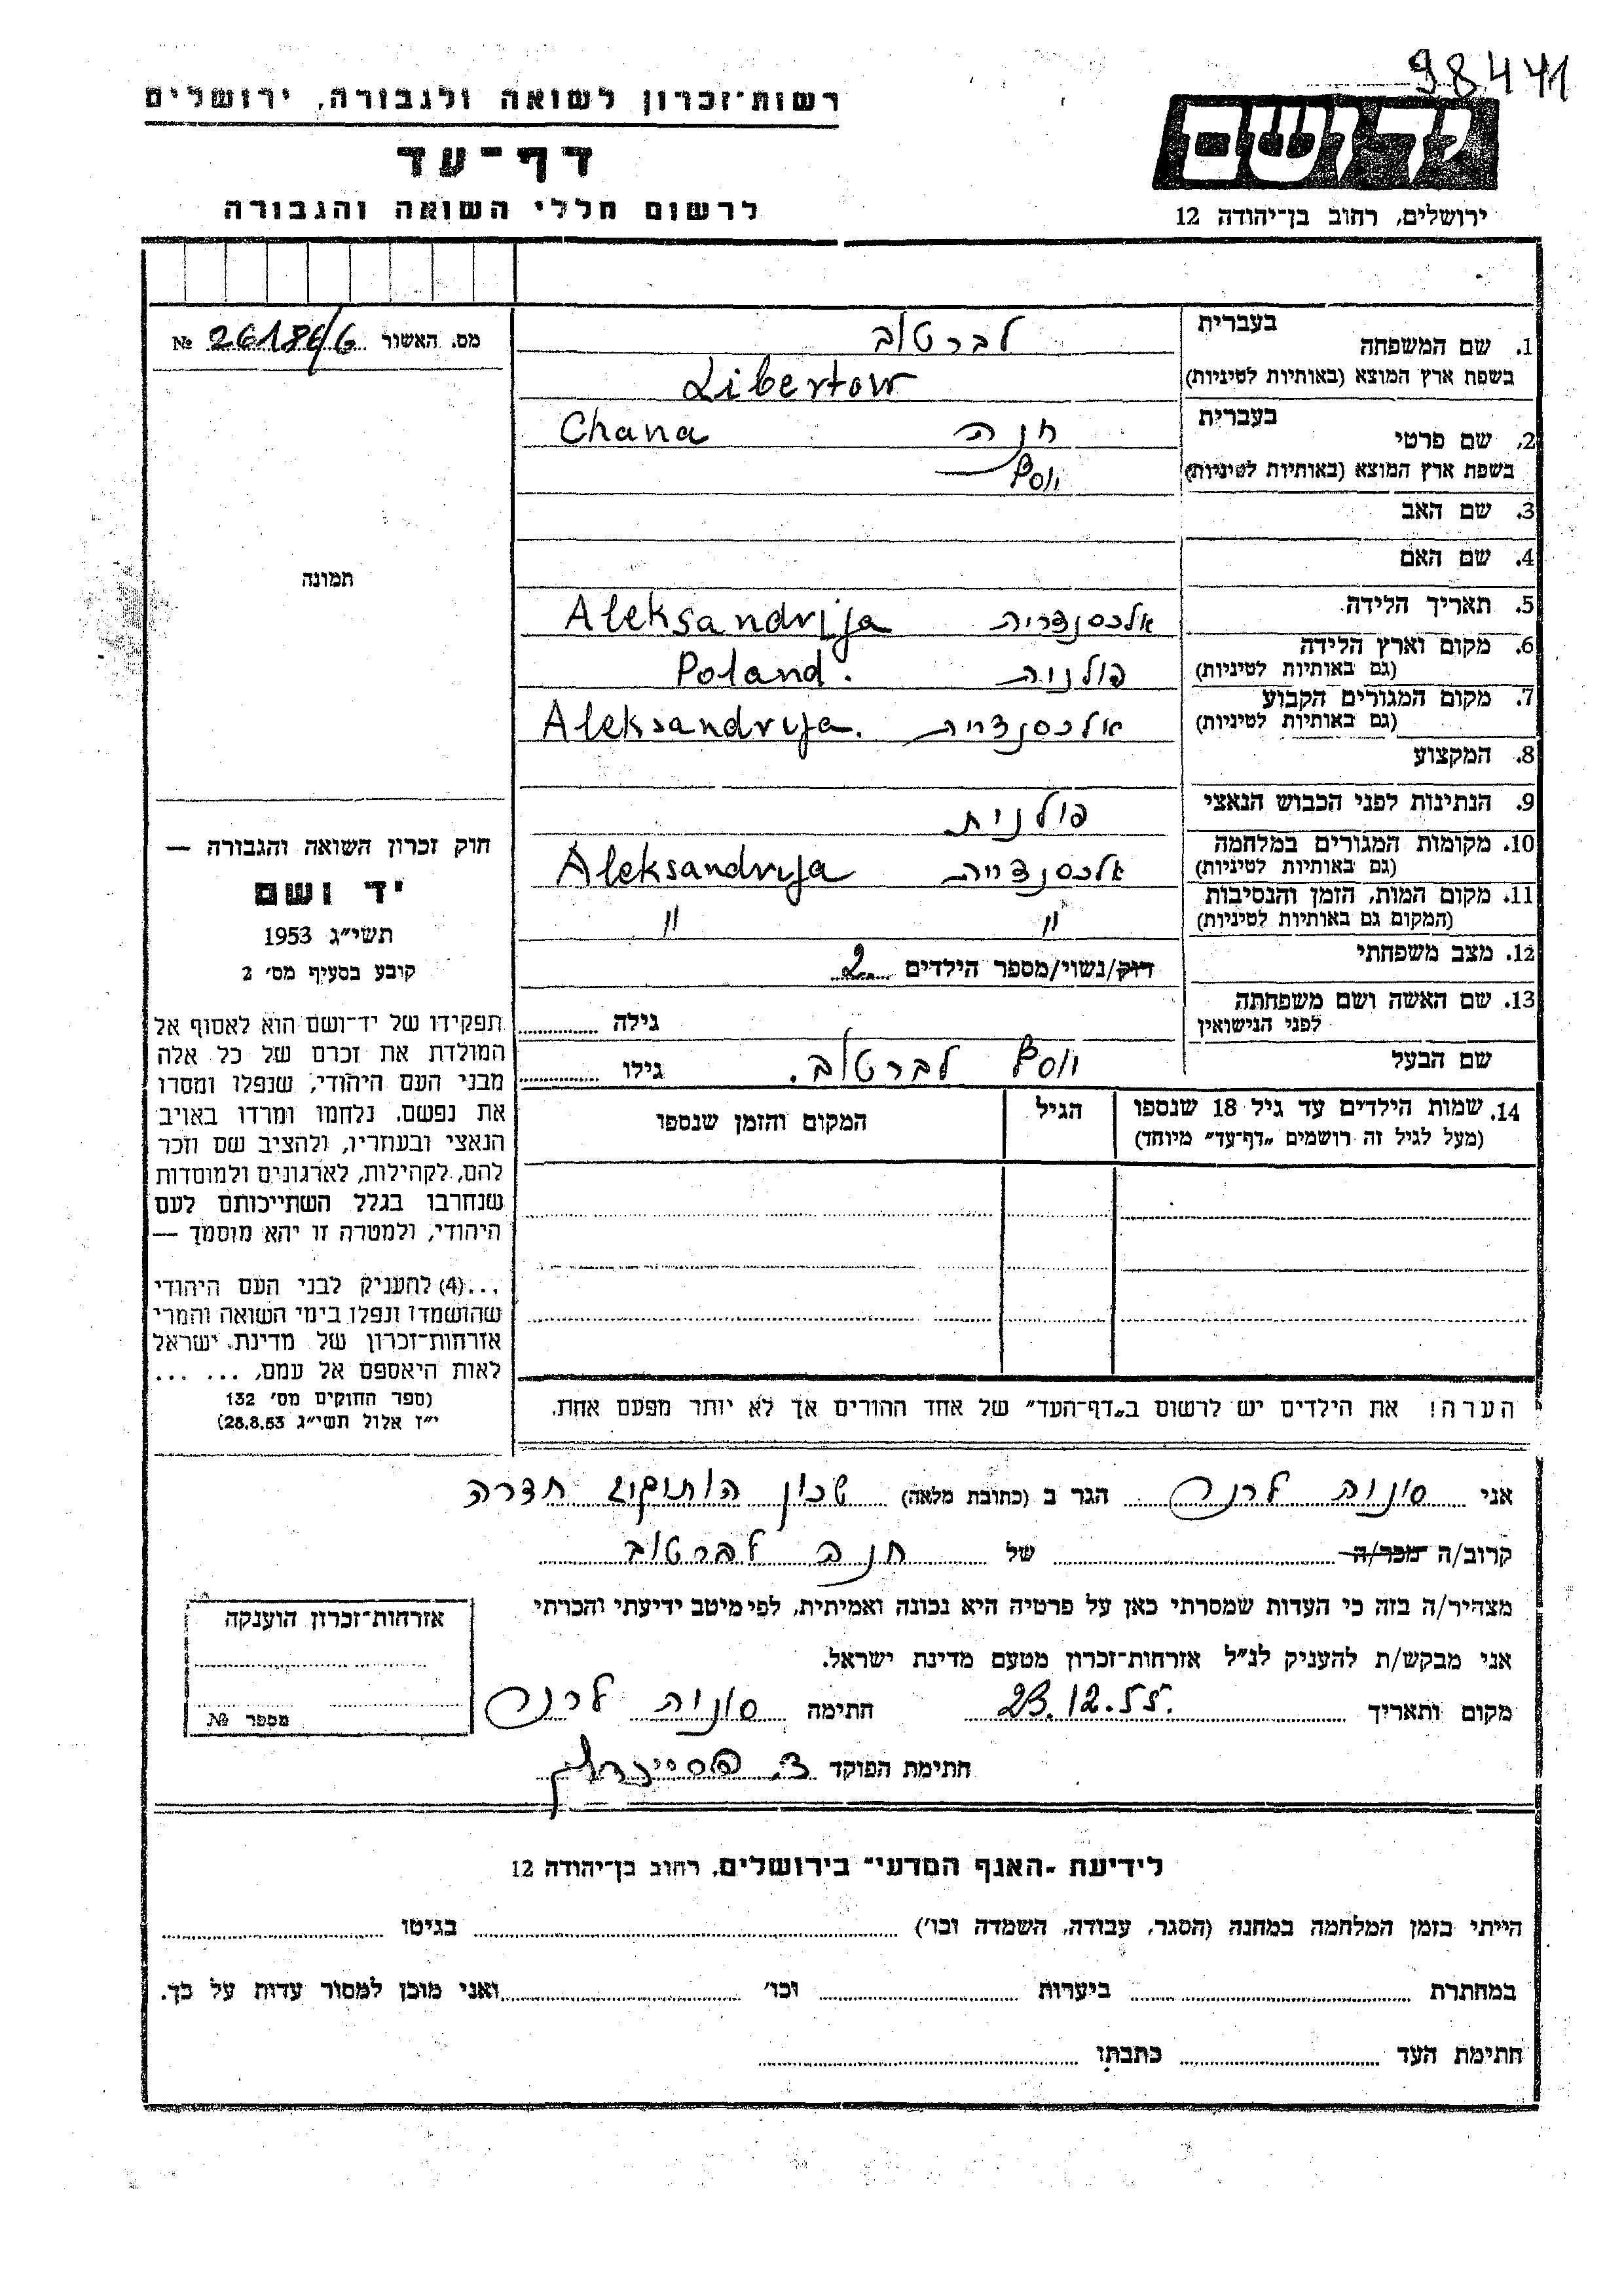 98441
רשות־זכרון לשואה ולגבורה, ירושלים
דף־עד
לרשום חללי השואה והגבורה
יד ושם
ירושלים, רחוב בן־יהודה 12
מס. האשור 26186/6 №
תמונה
חוק זכרון השואה והגבורה —
יד ושם
תשי״ג 1953
קובע בסעיף מס׳ 2
תפקידו של יד־ושם הוא לאסוף אל
המולדת את זכרם של כל אלה
מבני העם היהודי, שנפלו ומסרו
את נפשם, נלחמו ומרדו באויב
הנאצי ובעוזריו, ולהציב שם וזכר
להם, לקהילות, לארגונים ולמוסדות
שנחרבו בגלל השתייכותם לעם
היהודי, ולמטרה זו יהא מוסמך —
...(4) להעניק לבני העם היהודי
שהושמדו ונפלו בימי השואה והמרי
אזרחות־זכרון של מדינת ישראל
לאות היאספם אל עמם, ... ...
(ספר החוקים מס׳ 132
י״ז אלול תשי״ג 28.8.53)
1. שם המשפחה בעברית לברטוב
בשפת ארץ המוצא (באותיות לטיניות) Libertow
2. שם פרטי בעברית חנה Chana
בשפת ארץ המוצא (באותיות לטיניות)
3. שם האב
4. שם האם
5. תאריך הלידה
6. מקום וארץ הלידה אלכסנדריה Aleksandrija
(גם באותיות לטיניות) פולניה Poland.
7. מקום המגורים הקבוע
(גם באותיות לטיניות) אלכסנדריה Aleksandrija.
8. המקצוע
9. הנתינות לפני הכבוש הנאצי פולנית
10. מקומות המגורים במלחמה
(גם באותיות לטיניות) אלכסנדריה Aleksandrija
11. מקום המות, הזמן והנסיבות
(המקום גם באותיות לטיניות) " "
12. מצב משפחתי רוק/נשוי/מספר הילדים 2
13. שם האשה ושם משפחתה
לפני הנישואין גילה
שם הבעל לברטוב. גילו
14. שמות הילדים עד גיל 18 שנספו הגיל המקום והזמן שנספו
(מעל לגיל זה רושמים „דף־עד״ מיוחד)
הערה! את הילדים יש לרשום ב„דף־העד״ של אחד ההורים אך לא יותר מפעם אחת.
אני סוניה לרנר הגר ב (כתובת מלאה) שכון הותיקים חדרה
קרוב/ה מכר/ה של חנה לברטוב
מצהיר/ה בזה כי העדות שמסרתי כאן על פרטיה היא נכונה ואמיתית, לפי מיטב ידיעתי והכרתי
אני מבקש/ת להעניק לנ״ל אזרחות־זכרון מטעם מדינת ישראל.
מקום ותאריך 23.12.55. חתימה סוניה לרנר
חתימת הפוקד
אזרחות־זכרון הוענקה
מספר №
לידיעת „האגף המדעי״ בירושלים, רחוב בן־יהודה 12
הייתי בזמן המלחמה במחנה (הסגר, עבודה, השמדה וכו׳) בגיטו
במחתרת ביערות וכו׳ ואני מוכן למסור עדות על כך.
חתימת העד כתבתו